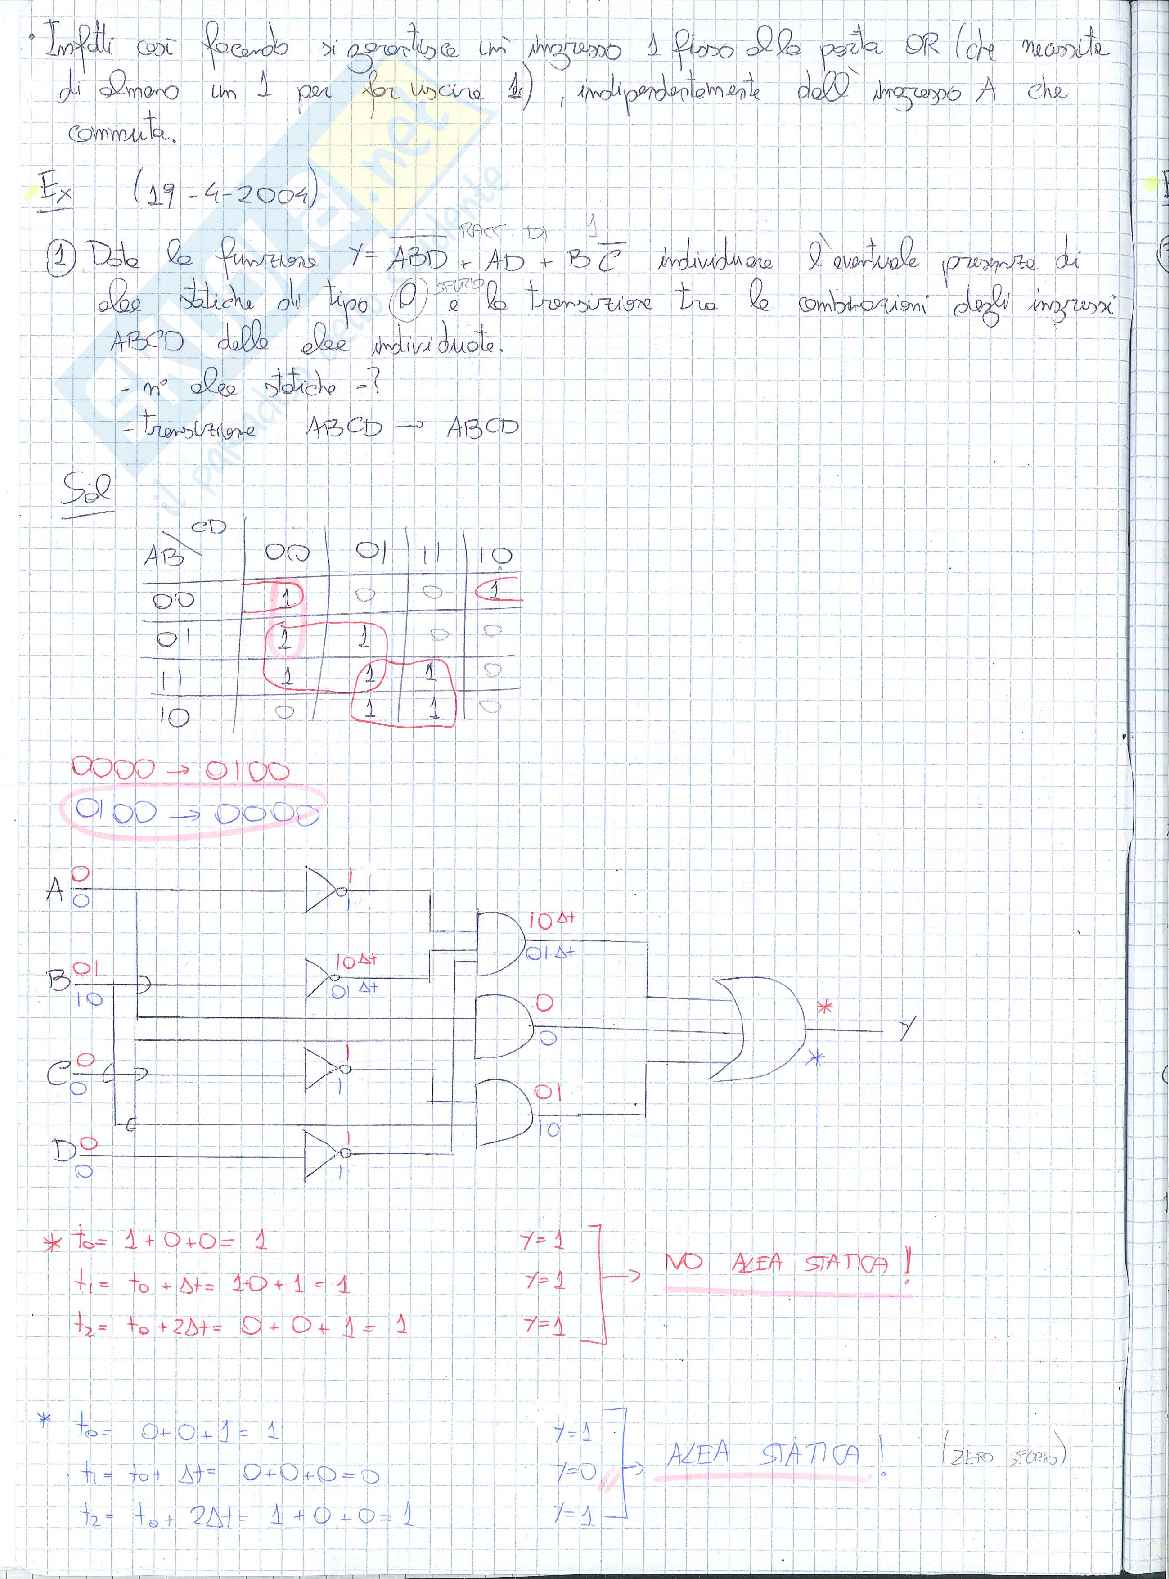 • Infatti così facendo si garantisce un ingresso 1 fisso alla porta OR (che necessita
di almeno un 1 per far uscire 1), indipendentemente dall'ingresso A che
commuta.
Ex (19-4-2004)
① Data la funzione Y = A̅B̅D̅ + AD + BC̅ individuare l'eventuale presenza di
alee statiche di tipo 0 e la transizione tra le combinazioni degli ingressi
ABCD delle alee individuate.
- n° alee statiche -?
- transizione ABCD → ABCD
Sol
AB\CD 00 01 11 10
00 1 0 0 1
01 1 1 0 0
11 1 1 1 0
10 0 1 1 0
0000 → 0100
0100 → 0000
A 0 0 1 1
10Δt
01Δt
B 01 10 10Δt 01Δt
0
0
Y * *
C 0 0 1 1
01
10
D 0 0 1 1
* t₀= 1+0+0= 1 Y=1
t₁= t₀+Δt= 1+0+1=1 Y=1 → NO ALEA STATICA!
t₂= t₀+2Δt= 0+0+1= 1 Y=1
* t₀= 0+0+1= 1 Y=1
t₁= t₀+Δt= 0+0+0=0 Y=0 → ALEA STATICA! (ZERO SPURIO)
t₂= t₀+2Δt= 1+0+0=1 Y=1
SKUOLA.net